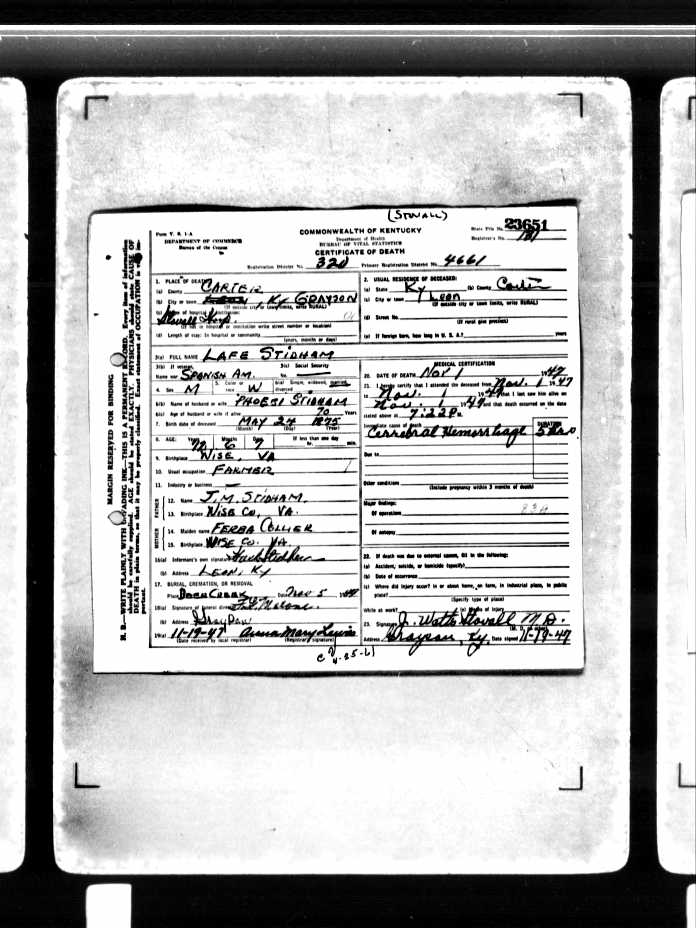 (STOVALL)
Form V. S. 1-A
DEPARTMENT OF COMMERCE
Bureau of the Census
COMMONWEALTH OF KENTUCKY
Department of Health
BUREAU OF VITAL STATISTICS
CERTIFICATE OF DEATH
State File No. 23651
Registrar's No. 181
Registration District No. 320 Primary Registration District No. 4661
MARGIN RESERVED FOR BINDING
N. B.—WRITE PLAINLY WITH UNFADING INK—THIS IS A PERMANENT RECORD. Every item of information
should be carefully supplied. AGE should be stated EXACTLY. PHYSICIANS should state CAUSE OF
DEATH in plain terms, so that it may be properly classified. Exact statement of OCCUPATION is very im-
portant.
1. PLACE OF DEATH
(a) County CARTER
(b) City or town , KY GRAYSON
(If outside city or town limits, write RURAL)
(c) Name of hospital or institution:
Stovall Hosp.
(If not in hospital or institution write street number or location)
(d) Length of stay: In hospital or community
(years, months or days)
3(a) FULL NAME LAFE STIDHAM
3(b) If veteran, Name war SPANISH AM. 3(c) Social Security No. —
4. Sex M 5. Color or race W 6(a) Single, widowed, married, divorced
6(b) Name of husband or wife PHOEBI STIDHAM
6(c) Age of husband or wife if alive 70 Years
7. Birth date of deceased MAY 24 1875
(Month) (Day) (Year)
8. AGE: Years 72 Months 6 Days 7 If less than one day hr. min.
9. Birthplace WISE, VA
10. Usual occupation FARMER
11. Industry or business —
FATHER
12. Name J.M. STIDHAM.
13. Birthplace WISE CO, VA.
MOTHER
14. Maiden name FERBA COLLIER
15. Birthplace WISE CO. VA.
16(a) Informant's own signature Stidham
(b) Address LEON, KY
17. BURIAL, CREMATION, OR REMOVAL
Place Creek Date Nov 5 1947
18(a) Signature of funeral director Malone.
(b) Address Grayson
19(a) 11-19-47 Anna Mary Lewis
(Date received by local registrar) (Registrar's signature)
2. USUAL RESIDENCE OF DECEASED:
(a) State Ky (b) County Carter
(c) City or town Leon
(If outside city or town limits, write RURAL)
(d) Street No.
(If rural give precinct)
(e) If foreign born, how long in U. S. A.? years
MEDICAL CERTIFICATION
20. DATE OF DEATH Nov 1 1947
21. I hereby certify that I attended the deceased from Nov. 1 1947
Nov. 1 1947 that I last saw him alive on
Nov 1 1947 and that death occurred on the date
stated above at 7:22 P.
Immediate cause of death DURATION
Cerrebral Hemorrhage 5 hrs
Due to
Other conditions
(Include pregnancy within 3 months of death)
Major findings:
Of operations 83a
Of autopsy
22. If death was due to external causes, fill in the following:
(a) Accident, suicide, or homicide (specify)
(b) Date of occurrence
(c) Where did injury occur? In or about home, on farm, in industrial place, in public
place?
(Specify type of place)
While at work? (e) Means of injury
23. Signature J. Watts Stovall M.D.
(M. D. or other)
Address Grayson, Ky. Date signed 11-19-47